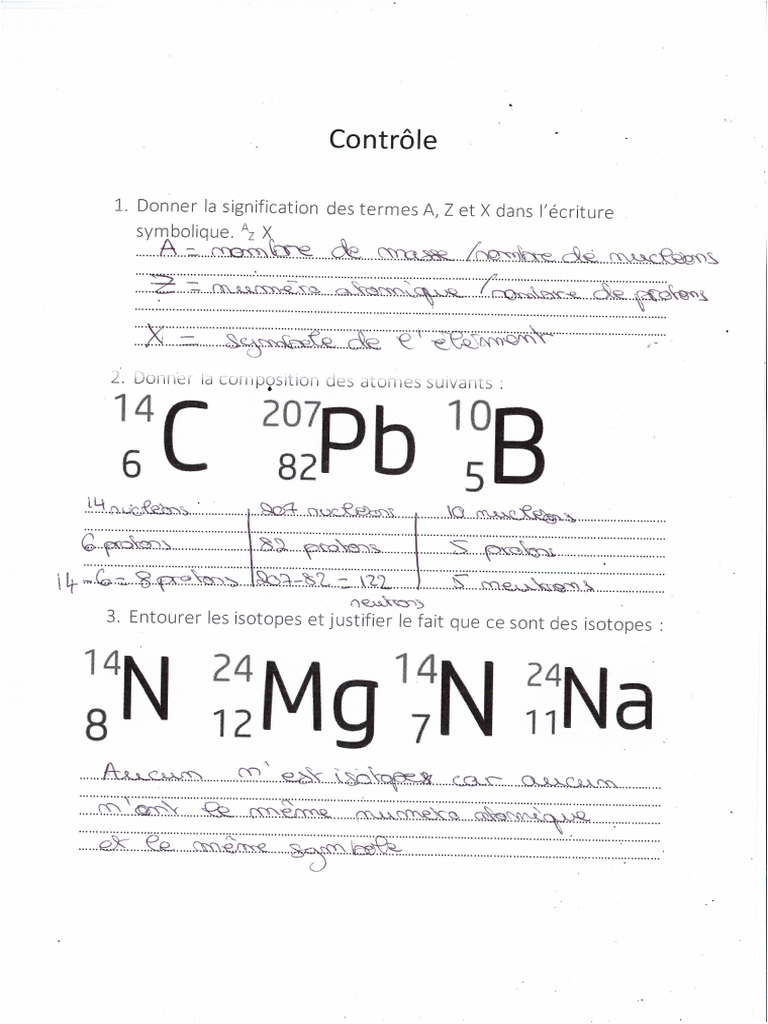 Contrôle
1. Donner la signification des termes A, Z et X dans l'écriture
symbolique. ᴬz X
A = nombre de masse / nombre de nucléons
Z = numéro atomique / nombre de protons
X = symbole de l'élément
2. Donner la composition des atomes suivants :
14 6 C 207 82 Pb 10 5 B
14 nucléons 207 nucléons 10 nucléons
6 protons 82 protons 5 protons
14-6 = 8 protons 207-82 = 122 5 neutrons
neutrons
3. Entourer les isotopes et justifier le fait que ce sont des isotopes :
14 8 N 24 12 Mg 14 7 N 24 11 Na
Aucun n'est isotopes car aucun
n'ont le même numéro atomique
et le même symbole